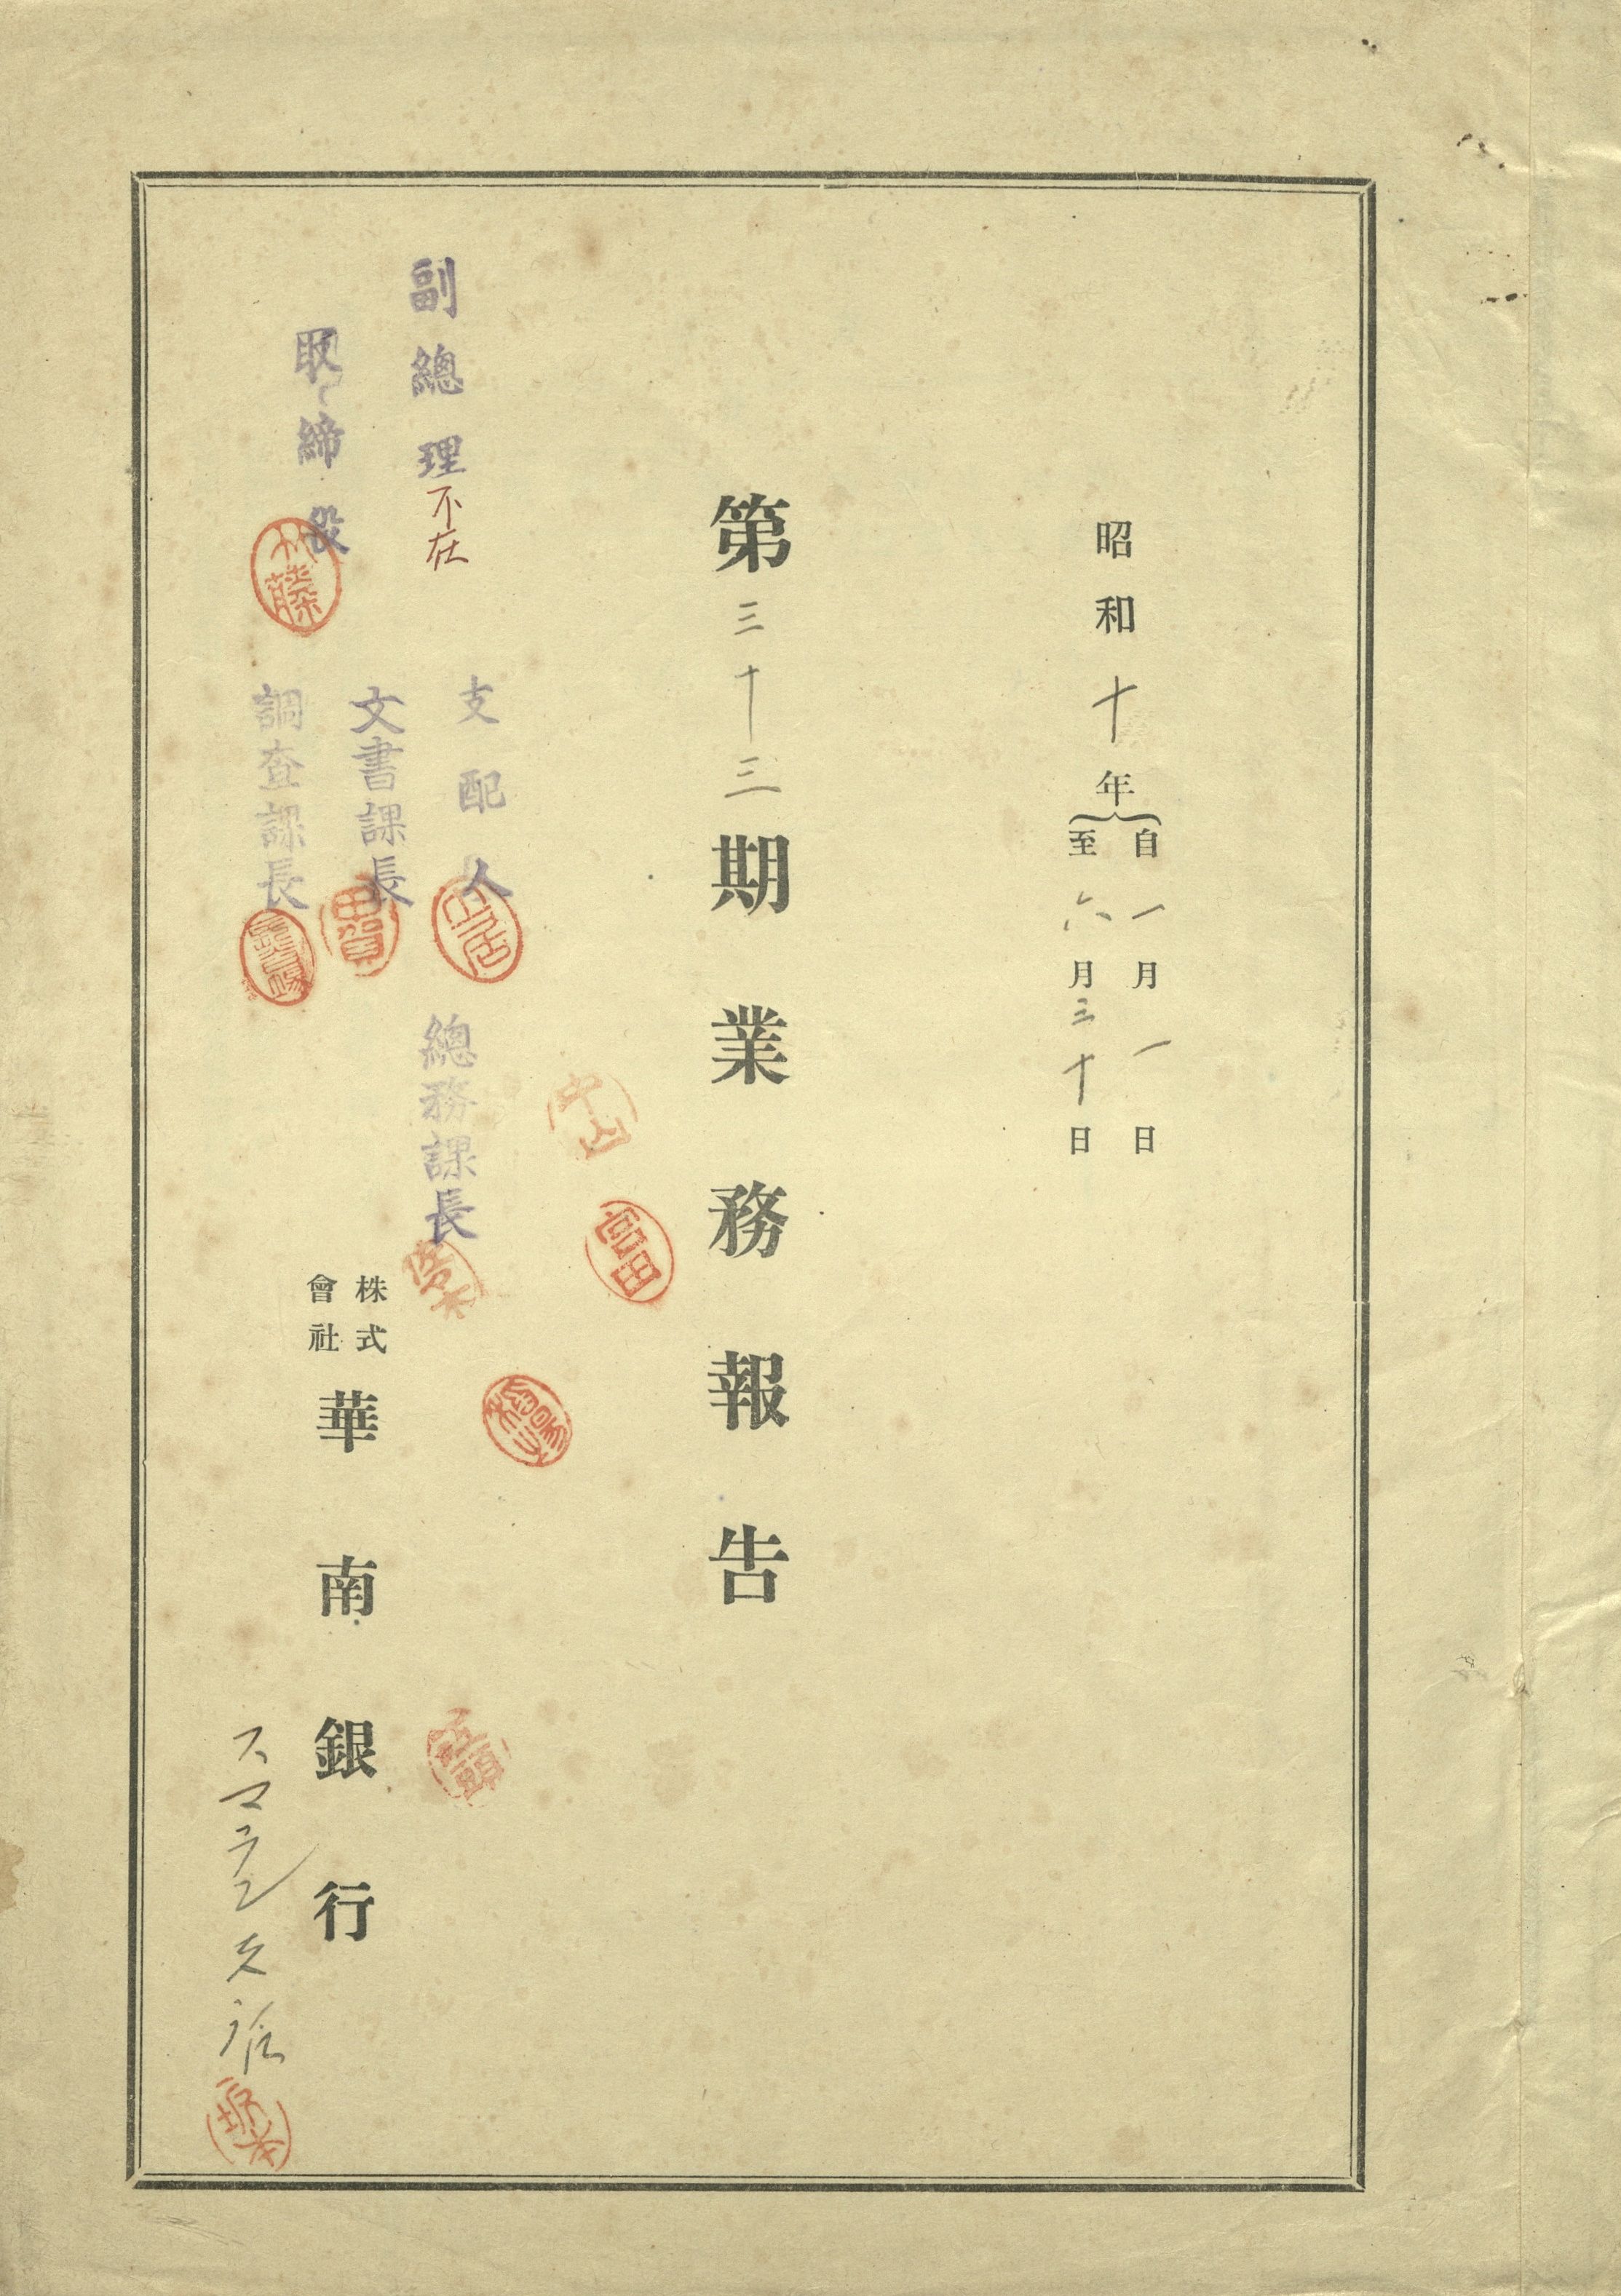 昭和十年
自一月一日
至六月三十日
第三十三期業務報告
副總理不在
取締役
支配人
文書課長
調査課長
總務課長
中山
富田
株式會社華南銀行
スマラン支店